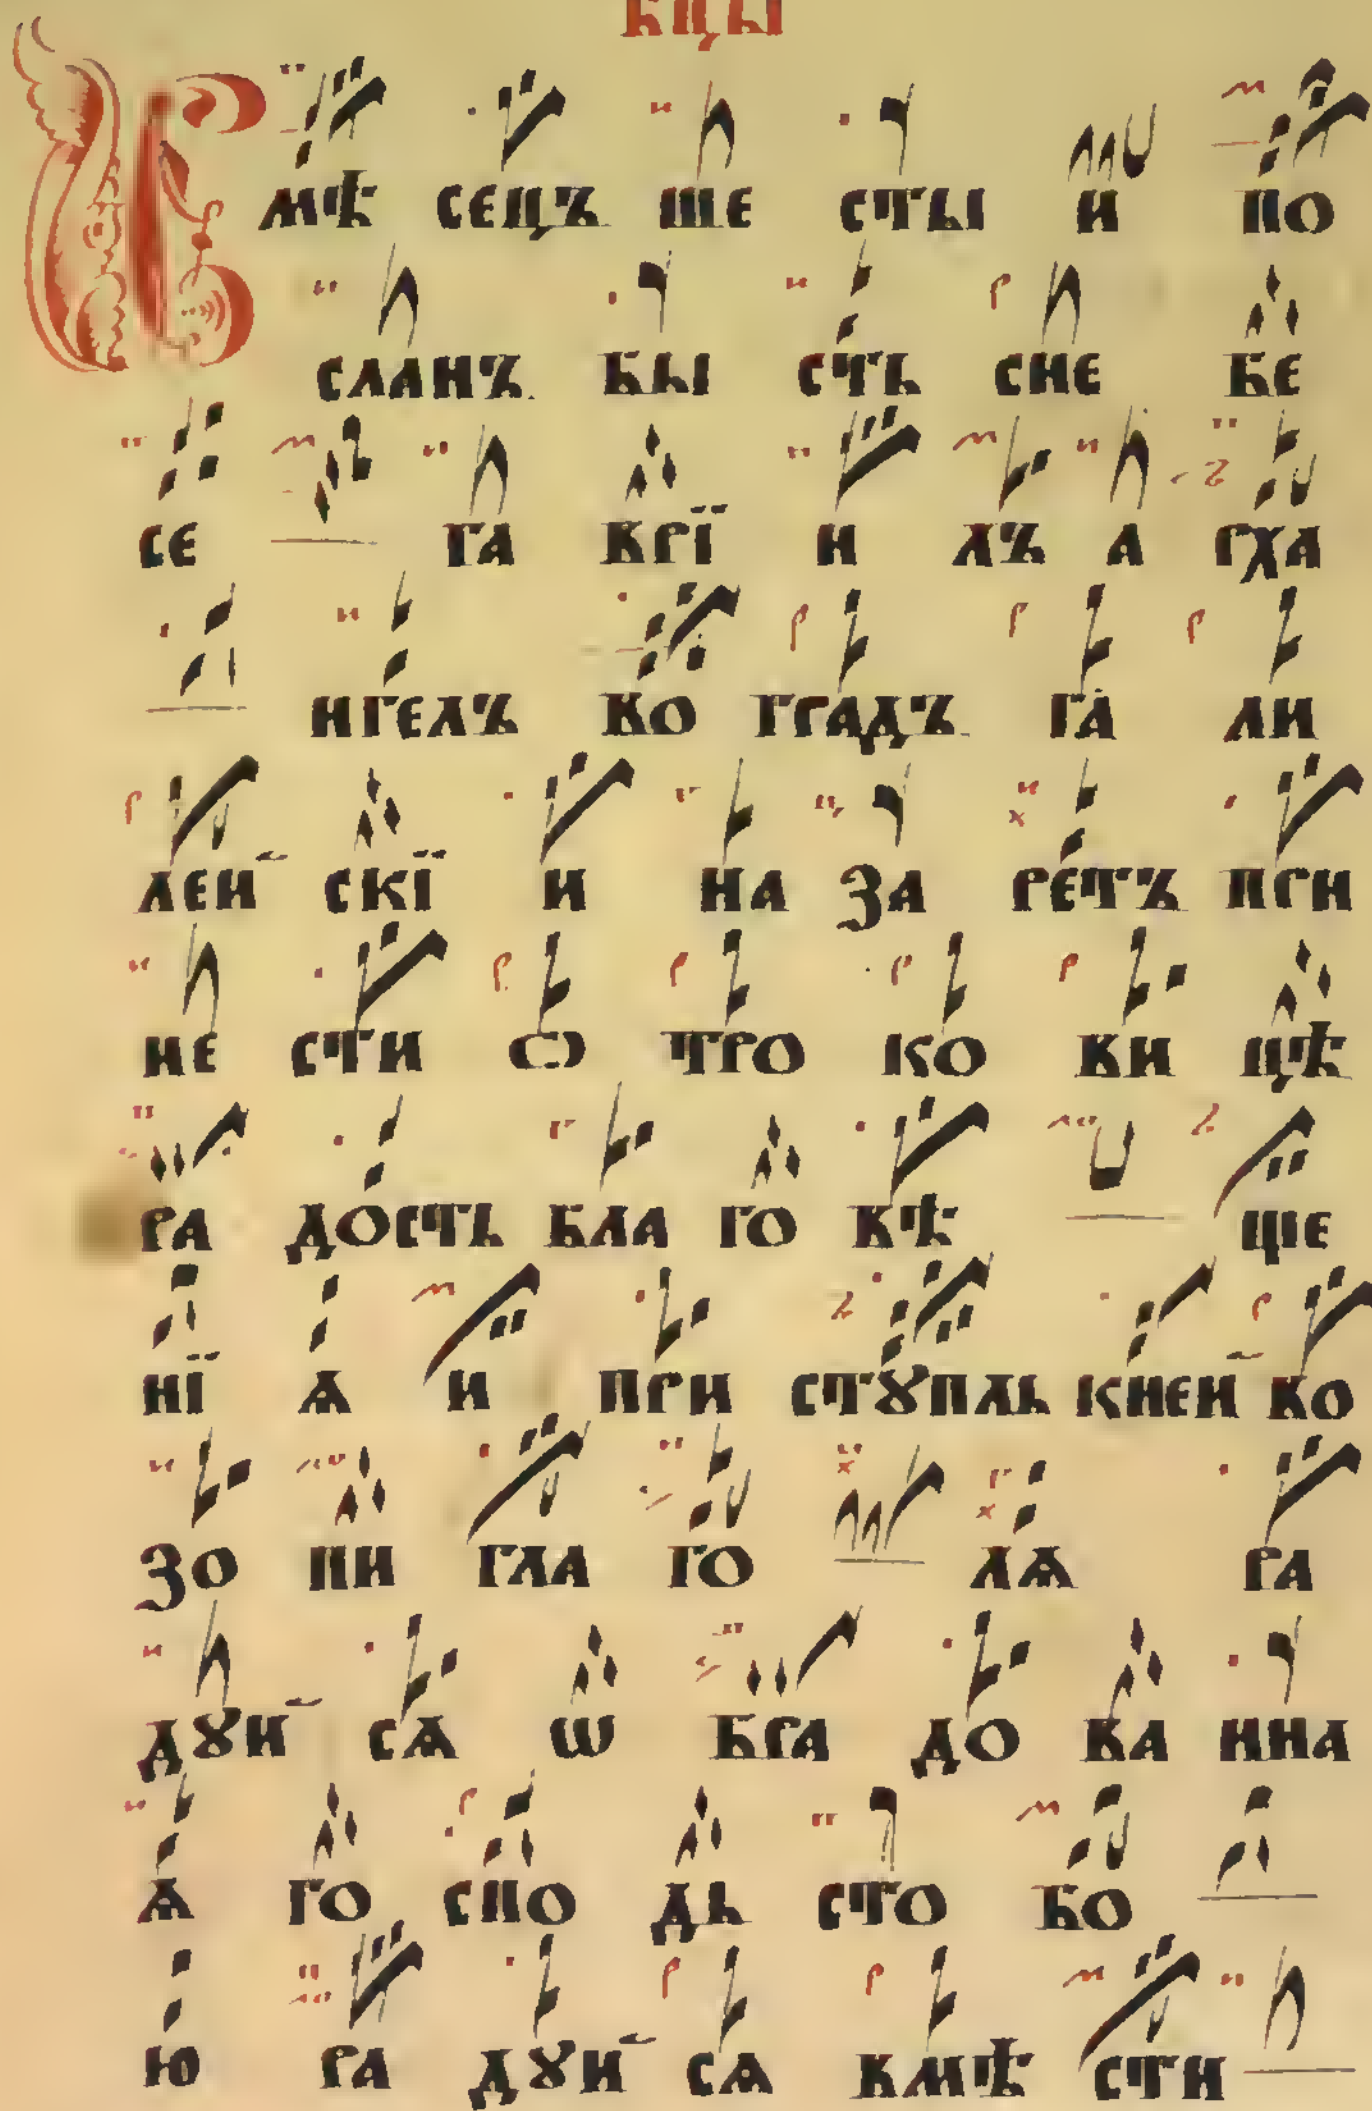 бцы
Вмѣ сецъ ше сты и по
сланъ бы сть сне бе
се га врї и лъ а рха
нгелъ во градъ га ли
лей скї и на за ретъ при
не сти ѻ тро ко ви цѣ
ра дость бла го вѣ ще
нї ѧ и при стꙋпль кней во
зо пи гла го лѧ ра
дꙋй сѧ ѡ бра до ва нна
ѧ го спо дь сто бо
ю ра дꙋй сѧ вмѣ сти